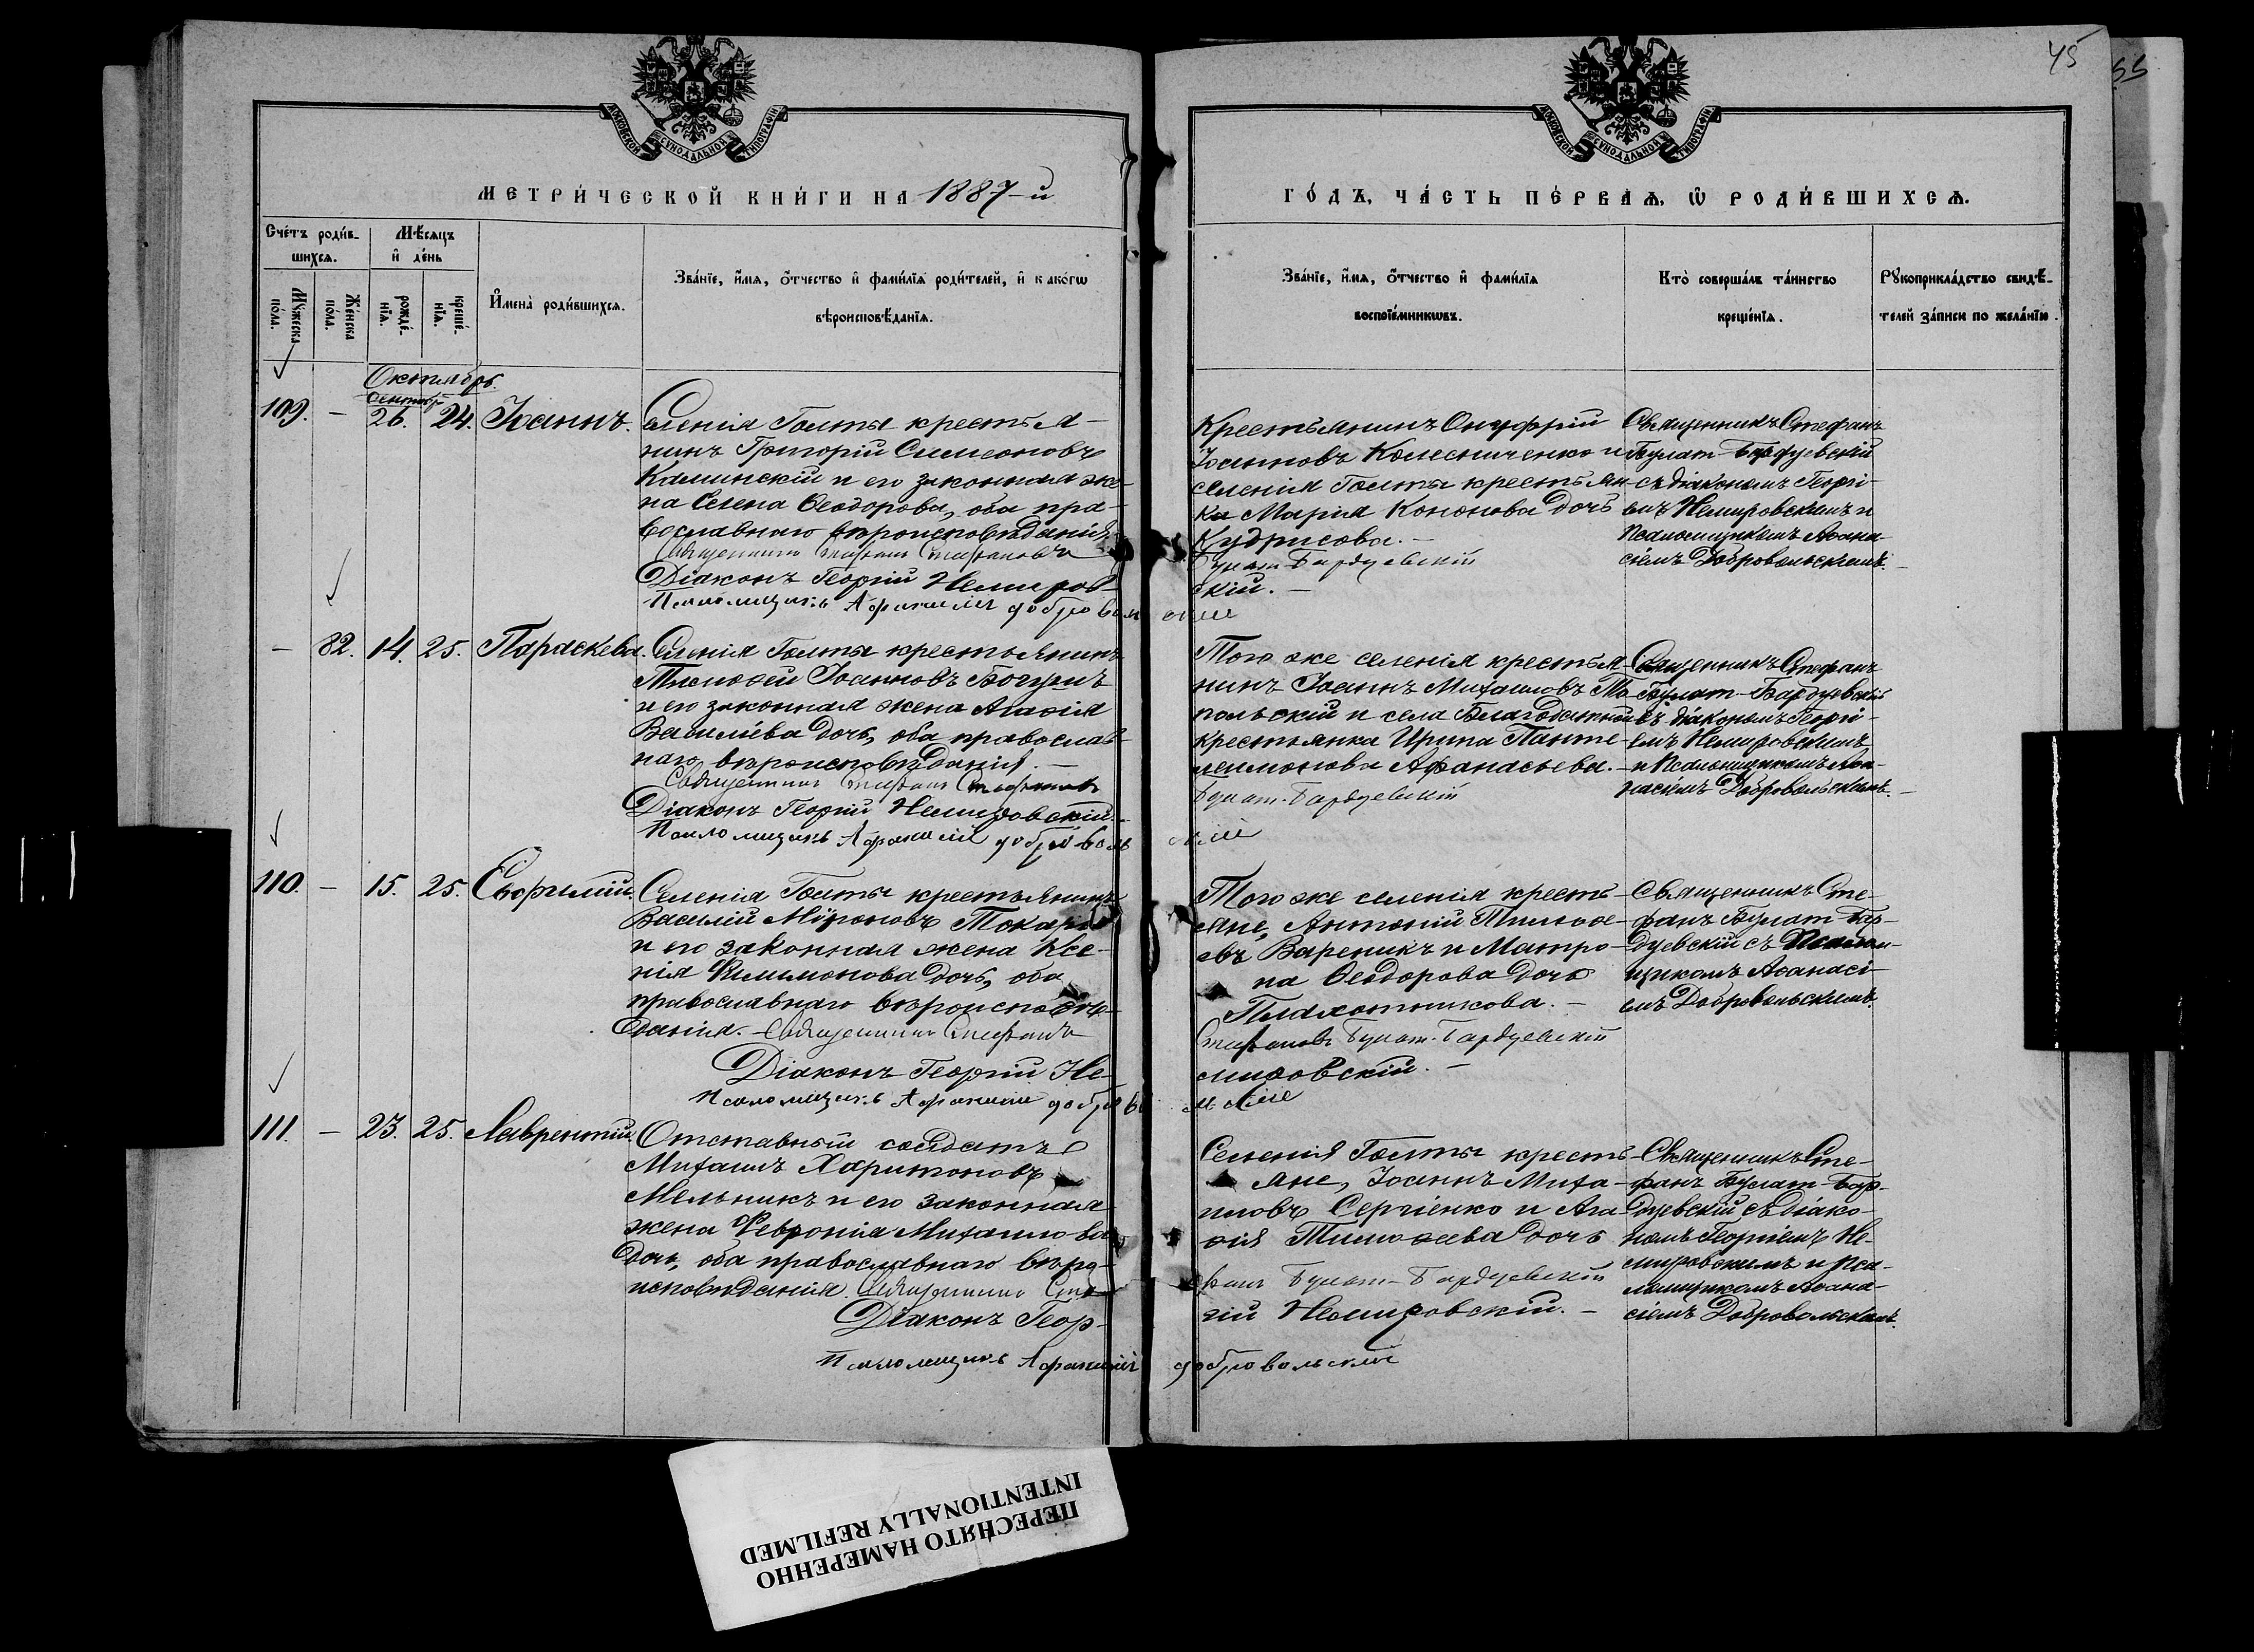 45
55
МОСКОВСКОЙ СѴНОДАЛЬНОЙ ТИПОГРАФІИ
МОСКОВСКОЙ СѴНОДАЛЬНОЙ ТИПОГРАФІИ
МЕТРИ́ЧЕСКОЙ КНИ́ГИ НА 1887-й
ГО́ДЪ, ЧА́СТЬ ПЕ́РВАѦ, Ѡ҆ РОДИ́ВШИХСѦ.
Сче́тъ роди́в-
шихсѧ.
Мꙋ́жеска по́ла.
Же́нска по́ла.
Мѣ́сяцъ
и҆ де́нь
рожде́-
нїѧ.
креще́-
нїѧ.
И҆мена̀ роди́вшихсѧ.
Зва́нїе, и҆́мѧ, ѻ҆́тчество и҆ фами́лїѧ роди́телей, и҆ како́гѡ
вѣроисповѣ́данїѧ.
Зва́нїе, и҆́мѧ, ѻ҆́тчество и҆ фами́лїѧ
воспрїе́мникѡвъ.
Кто̀ соверша́лъ та́инство
креще́нїѧ.
Рꙋкоприкла́дство свидѣ́-
телей за́писи по жела́нїю.
Октябрь.
Сентябр
109. – 26. 24. Іоаннъ.
Селенія Голты крестья-
нинъ Григорій Симеоновъ
Калинскій и его законная же-
на Елена Ѳеодорова, оба пра-
вославнаго вѣроисповѣданія.
Священникъ Стефанъ Стефановъ
Діаконъ Георгій Немиров-
Псаломщикъ Афанасій Доброволь
Крестьянинъ Онуфрій
Іоанновъ Колесниченко и
селенія Голты крестьян-
ка Марія Кононова дочь
Кудрисова.–
Булат-Бардуевскій
скій.–
скій
Священникъ Стефанъ
Булат-Бардуевскій
съ діакономъ Георгі-
емъ Немировскимъ и
Псаломщикомъ Аѳана-
сіемъ Добровольскимъ.
– 82. 14. 25. Параскева.
Селенія Голты крестьянинъ
Тимоѳей Іоанновъ Богушъ
и его законная жена Агаѳія
Василіева дочь, оба православ-
наго вѣроисповѣданія.–
Священникъ Стефанъ Стефановъ
Діаконъ Георгій Немировскій.–
Псаломщикъ Афанасій Доброволь
Того же селенія крестья-
нинъ Іоаннъ Михаиловъ То-
польскій и села Благодатной
крестьянка Ирина Панте-
леимонова Афанасьева.–
Булат-Бардуевскій
скій
Священникъ Стефанъ
Булат-Бардуевскій
съ діакономъ Георгі-
емъ Немировскимъ
и Псаломщикомъ Аѳа-
насіемъ Добровольскимъ.
110. – 15. 25. Евфимій.
Селенія Голты крестьянинъ
Василій Мироновъ Токарь
и его законная жена Ксе-
нія Филимонова дочь, оба
православнаго вѣроисповѣ-
данія.– Священникъ Стефанъ
Діаконъ Георгій Не-
Псаломщикъ Афанасій Добро во
Того же селенія кресть-
яне, Антоній Тимоѳе-
евъ Вареникъ и Матро-
на Ѳеодорова дочь
Плахотникова.–
Стефановъ Булат-Бардуевскій
мировскій.–
льскій
Священникъ Сте-
фанъ Булат-Бар-
дуевскій съ Псалом-
щикомъ Аѳанасі-
емъ Добровольскимъ.
111. – 23. 25. Лаврентій.
Отставный солдатъ
Михаилъ Харитоновъ
Мельникъ и его законная
жена Февронія Михаилова
дочь, оба православнаго вѣро-
исповѣданія. Священникъ Сте
Діаконъ Геор-
Псаломщикъ Афанасій
Селенія Голты кресть-
яне, Іоаннъ Миха-
иловъ Сергіенко и Ага-
ѳія Тимоѳеева дочь
фанъ Булат-Бардуевскій
гій Немировскій.–
Добровольскій
Священникъ Сте-
фанъ Булат-Бар-
дуевскій съ діако-
номъ Георгіемъ Не-
мировскимъ и Пса-
ломщикомъ Аѳана-
сіемъ Добровольскимъ.
ПЕРЕСНЯТО НАМЕРЕННО
INTENTIONALLY REFILMED